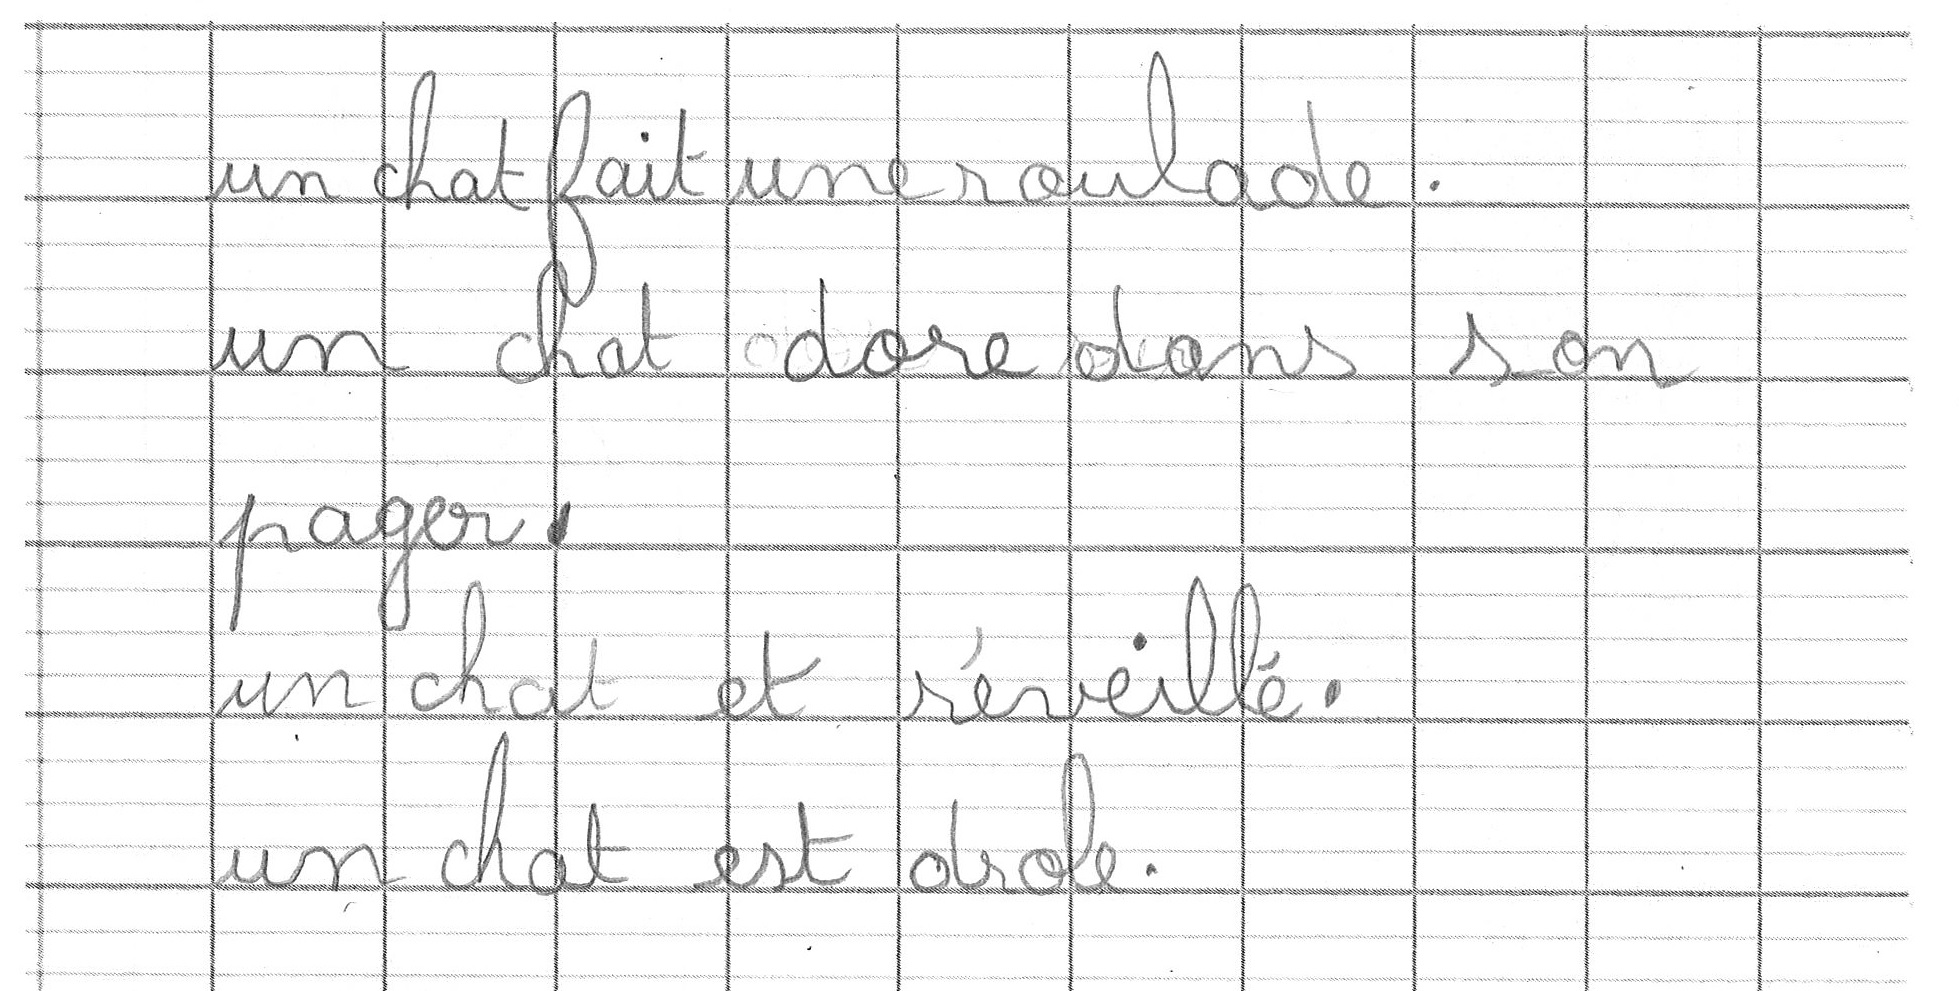 un chat fait une roulade.
un chat dore dans son
pager.
un chat et réveillé.
un chat est drole.